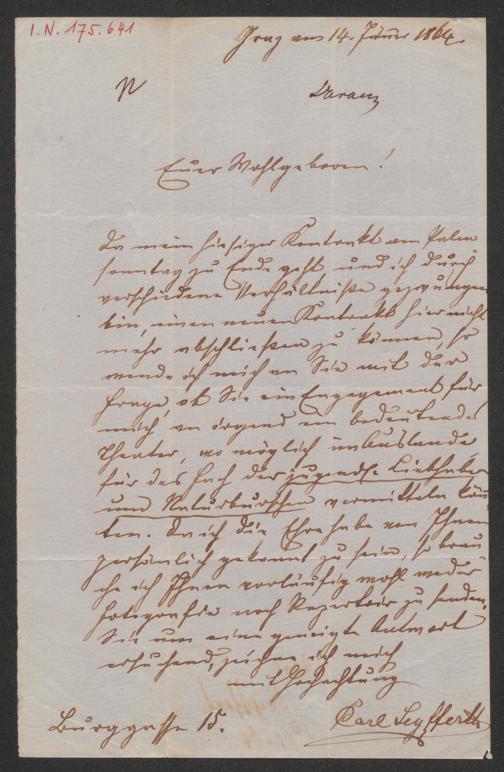 I. N. 175.641
Graz am 14. Jänner 1864.
N
Euer Wohlgeboren!
Da mein hiesiger Kontrakt am Palm
sonntag zu Ende geht und ich durch
verschiedene Verhältniße gezwungen
bin, einen neuen Kontrakt hier nicht
mehr abschließen zu können, so
wende ich mich an Sie mit der
Frage, ob Sie ein Engagement für
mich an irgend ein bedeutendes
Theater, wo möglich im Auslande
für das Fach der jugendl. Liebhaber
und Naturburschen vermitteln könn
ten. Da ich die Ehre habe von Ihnen
persönlich gekannt zu sein, so brau
che ich Ihnen vorläufig wohl weder
Fotografie noch Repertoir zu senden.
Sie um eine geneigte Antwort
ersuchend, zeichne ich mich
mit Hochachtung
Carl Seyfferth
Burggasse 15.